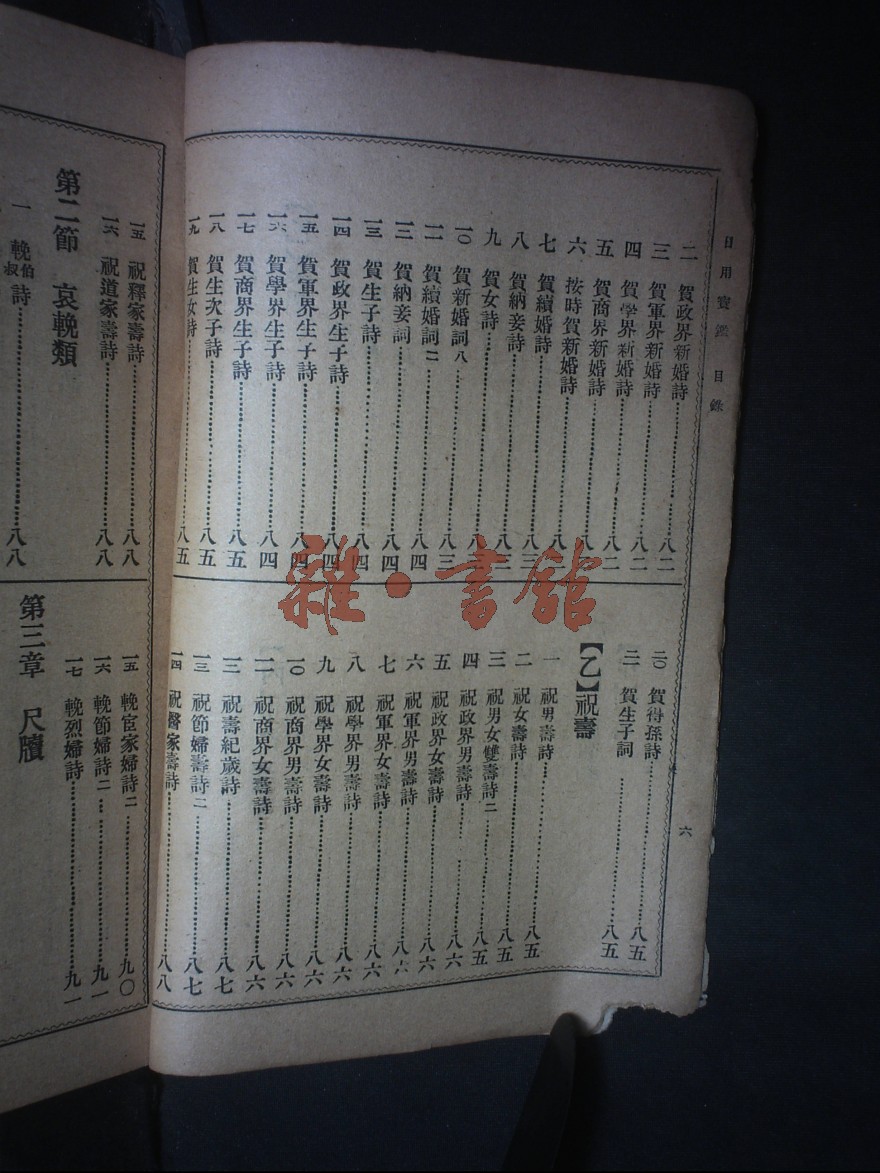 日用寶鑑 目錄
六
二 賀政界新婚詩 八二
三 賀軍界新婚詩 八二
四 賀學界新婚詩 八二
五 賀商界新婚詩 八二
六 按時賀新婚詩 八二
七 賀續婚詩 八三
八 賀納妾詩 八三
九 賀女詩
一〇 賀新婚詞八 八三
一一 賀續婚詞二 八四
一二 賀納妾詞 八四
一三 賀生子詩 八四
一四 賀政界生子詩 八四
一五 賀軍界生子詩 八四
一六 賀學界生子詩 八四
一七 賀商界生子詩 八五
一八 賀生次子詩 八五
一九 賀生女詩 八五
二〇 賀得孫詩 八五
二一 賀生子詞 八五
【乙】祝壽
一 祝男壽詩 八五
二 祝女壽詩 八五
三 祝男女雙壽詩二 八五
四 祝政界男壽詩 八六
五 祝政界女壽詩 八六
六 祝軍界男壽詩 八六
七 祝軍界女壽詩 八六
八 祝學界男壽詩 八六
九 祝學界女壽詩 八六
一〇 祝商界男壽詩 八六
一一 祝商界女壽詩 八六
一二 祝壽紀歲詩 八七
一三 祝節婦壽詩二 八七
一四 祝醫家壽詩 八八
一五 祝釋家壽詩 八八
一六 祝道家壽詩 八八
第二節 哀輓類
一 輓伯叔詩 八八
一五 輓宦家婦詩二 九〇
一六 輓節婦詩二 九一
一七 輓烈婦詩 九一
第三章 尺牘
雜·書館